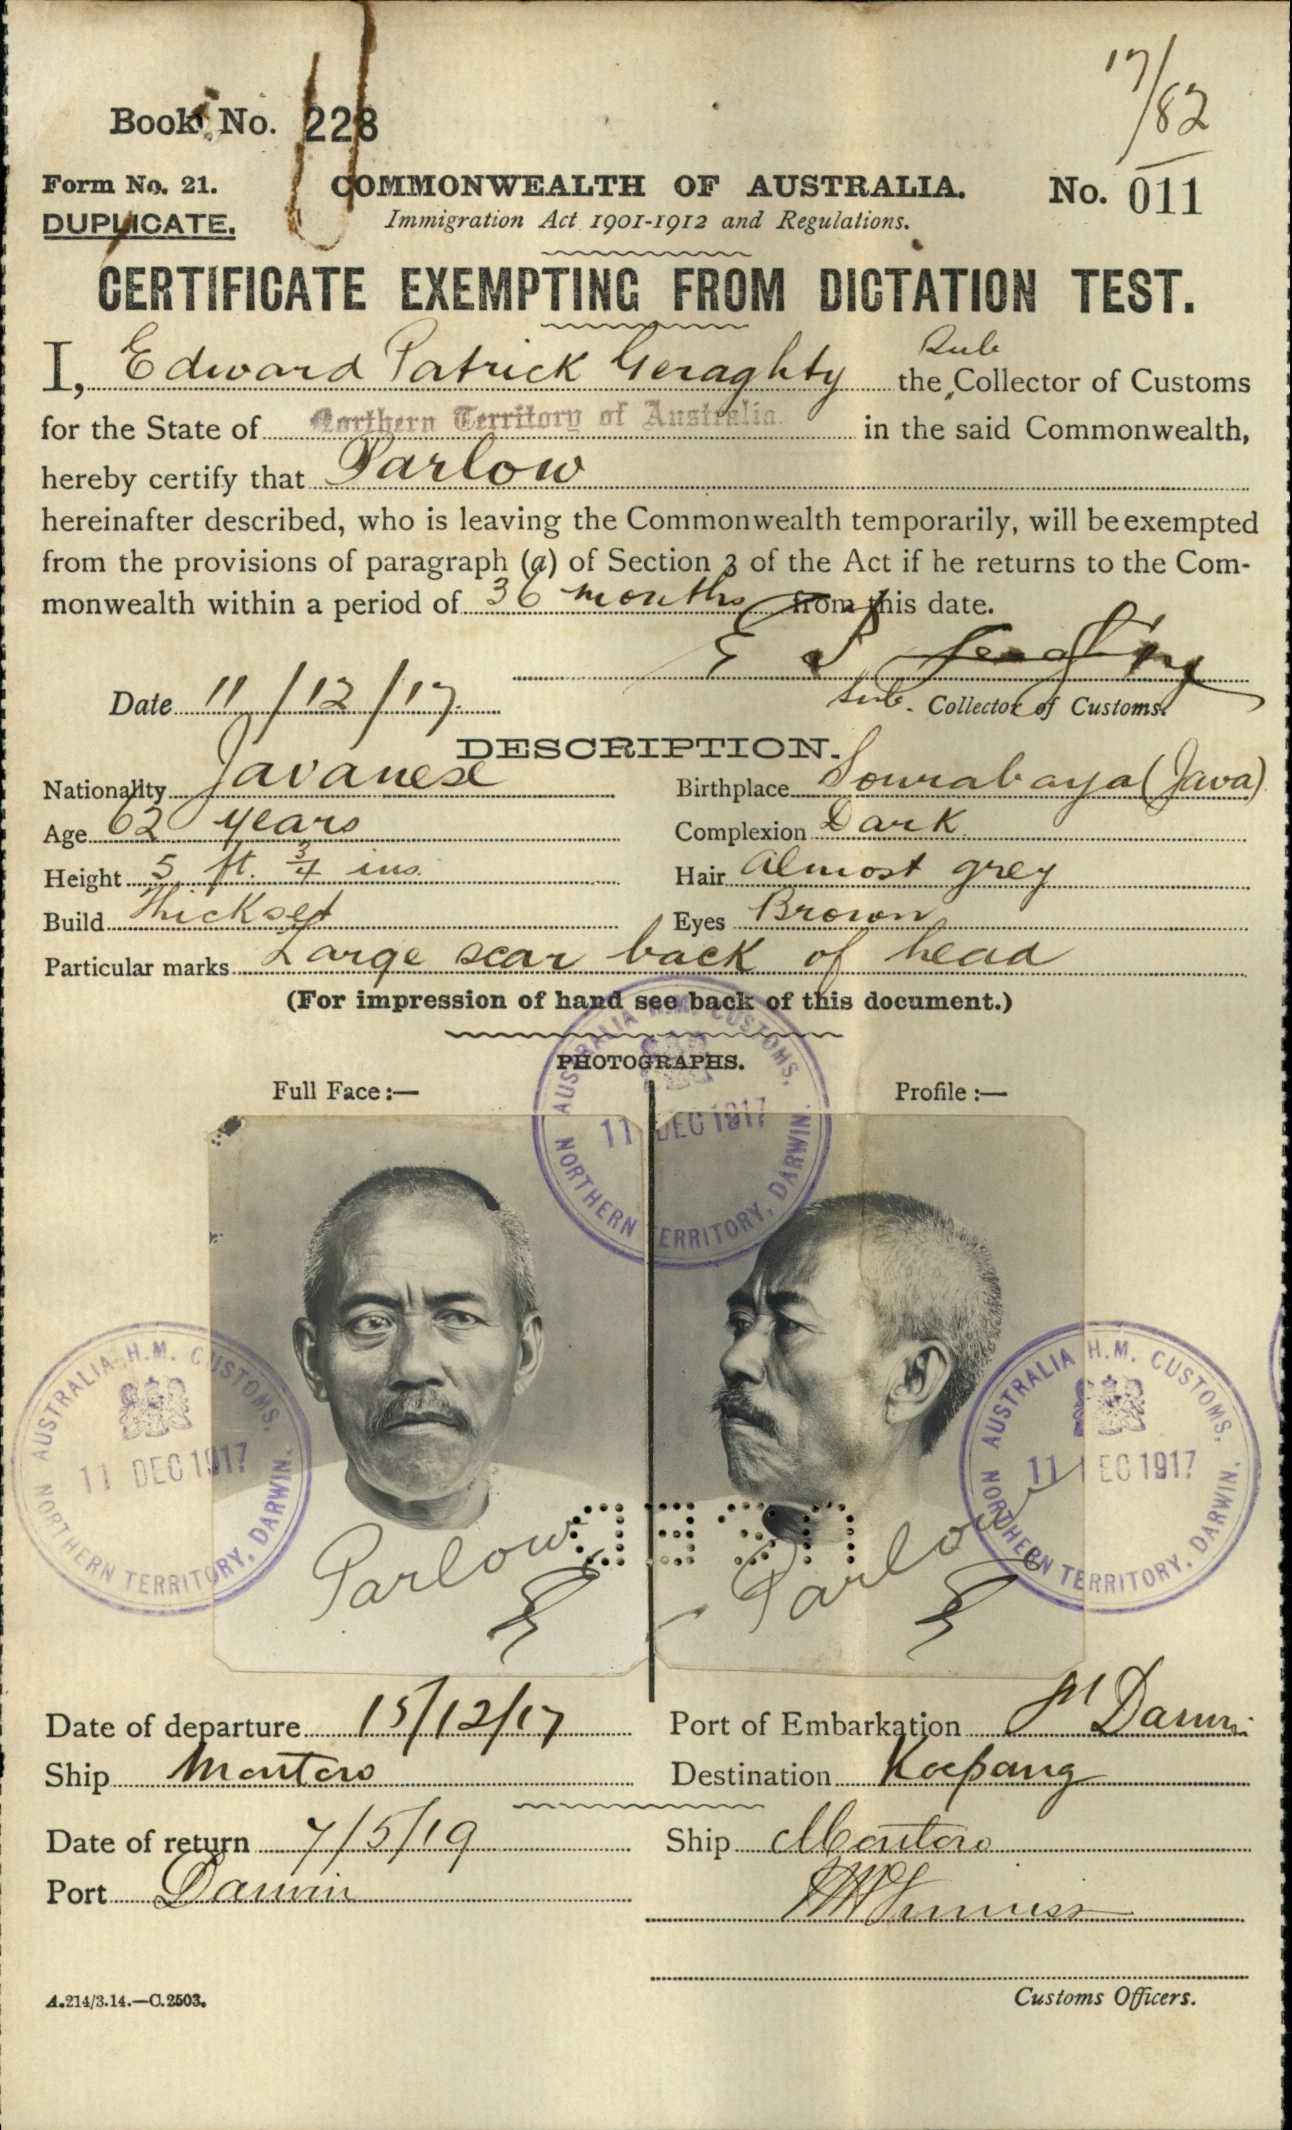 17/82
Book No. 228
Form No. 21.
COMMONWEALTH OF AUSTRALIA.
No. 011
DUPLICATE.
Immigration Act 1901-1912 and Regulations.
CERTIFICATE EXEMPTING FROM DICTATION TEST.
I, Edward Patrick Geraghty the Sub Collector of Customs
for the State of Northern Territory of Australia in the said Commonwealth,
hereby certify that Parlow
hereinafter described, who is leaving the Commonwealth temporarily, will be exempted
from the provisions of paragraph (a) of Section 3 of the Act if he returns to the Com-
monwealth within a period of 36 months from this date.
E P Geraghty
Date 11/12/17. Sub. Collector of Customs.
DESCRIPTION.
Nationality Javanese Birthplace Sourabaya (Java)
Age 62 years Complexion Dark
Height 5 ft. 3/4 ins. Hair Almost grey
Build Thickset Eyes Brown
Particular marks Large scar back of head
(For impression of hand see back of this document.)
PHOTOGRAPHS.
Full Face :— Profile :—
AUSTRALIA H.M. CUSTOMS,
11 DEC 1917
NORTHERN TERRITORY, DARWIN.
AUSTRALIA H.M. CUSTOMS,
11 DEC 1917
NORTHERN TERRITORY, DARWIN.
AUSTRALIA H.M. CUSTOMS,
11 DEC 1917
NORTHERN TERRITORY, DARWIN.
Parlow Parlow
Date of departure 15/12/17 Port of Embarkation Pt Darwin
Ship Montoro Destination Koepang
Date of return 7/5/19 Ship Montoro
Port Darwin
A.214/3.14.—C.2503. Customs Officers.